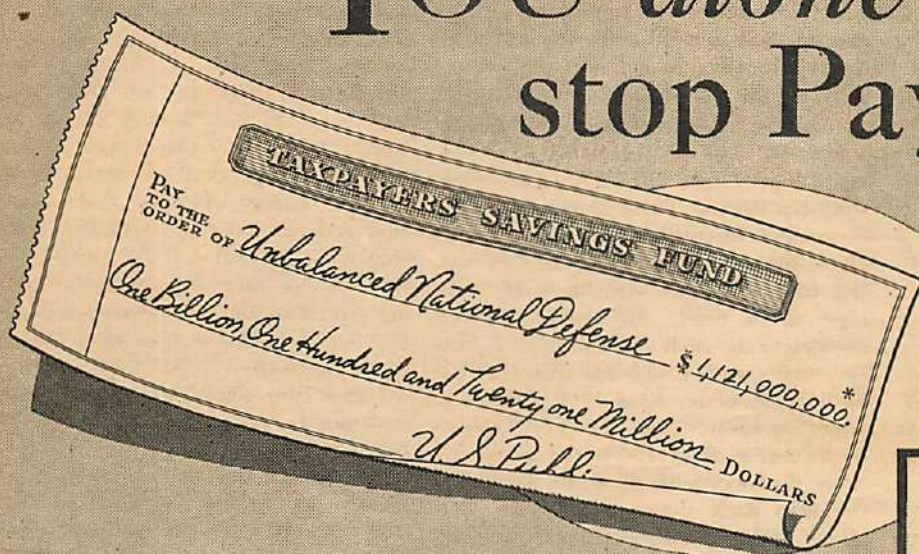 YOU alone
stop Pay
TAXPAYERS SAVINGS FUND
PAY
TO THE
ORDER OF Unbalanced National Defense $1,121,000,000.*
One Billion, One Hundred and Twenty one Million DOLLARS
U.S. Publ.